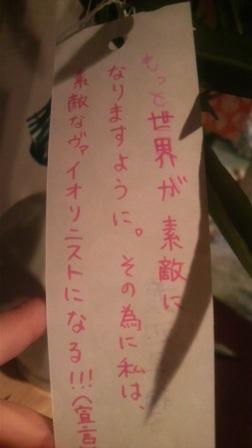 もっと世界が素敵に
なりますように。その為に私は、
素敵なヴァイオリニストになる!!!(宣言